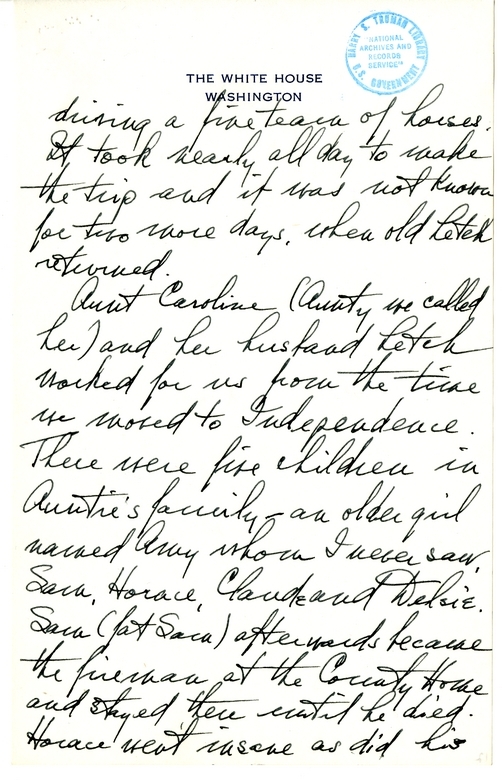 HARRY S. TRUMAN LIBRARY
"NATIONAL
ARCHIVES AND
RECORDS
SERVICE"
U.S. GOVERNMENT
THE WHITE HOUSE
WASHINGTON
driving a fine team of horses.
It took nearly all day to make
the trip and it was not known
for two more days, when old Letch
returned.
Aunt Caroline (Aunty we called
her) and her husband Letch
worked for us from the time
we moved to Independence.
There were five children in
Auntie's family - an older girl
named Amy whom I never saw,
Sam, Horace, Claude and Delsie.
Sam (fat Sam) afterwards became
the fireman at the County Home
and stayed there until he died.
Horace went insane as did his